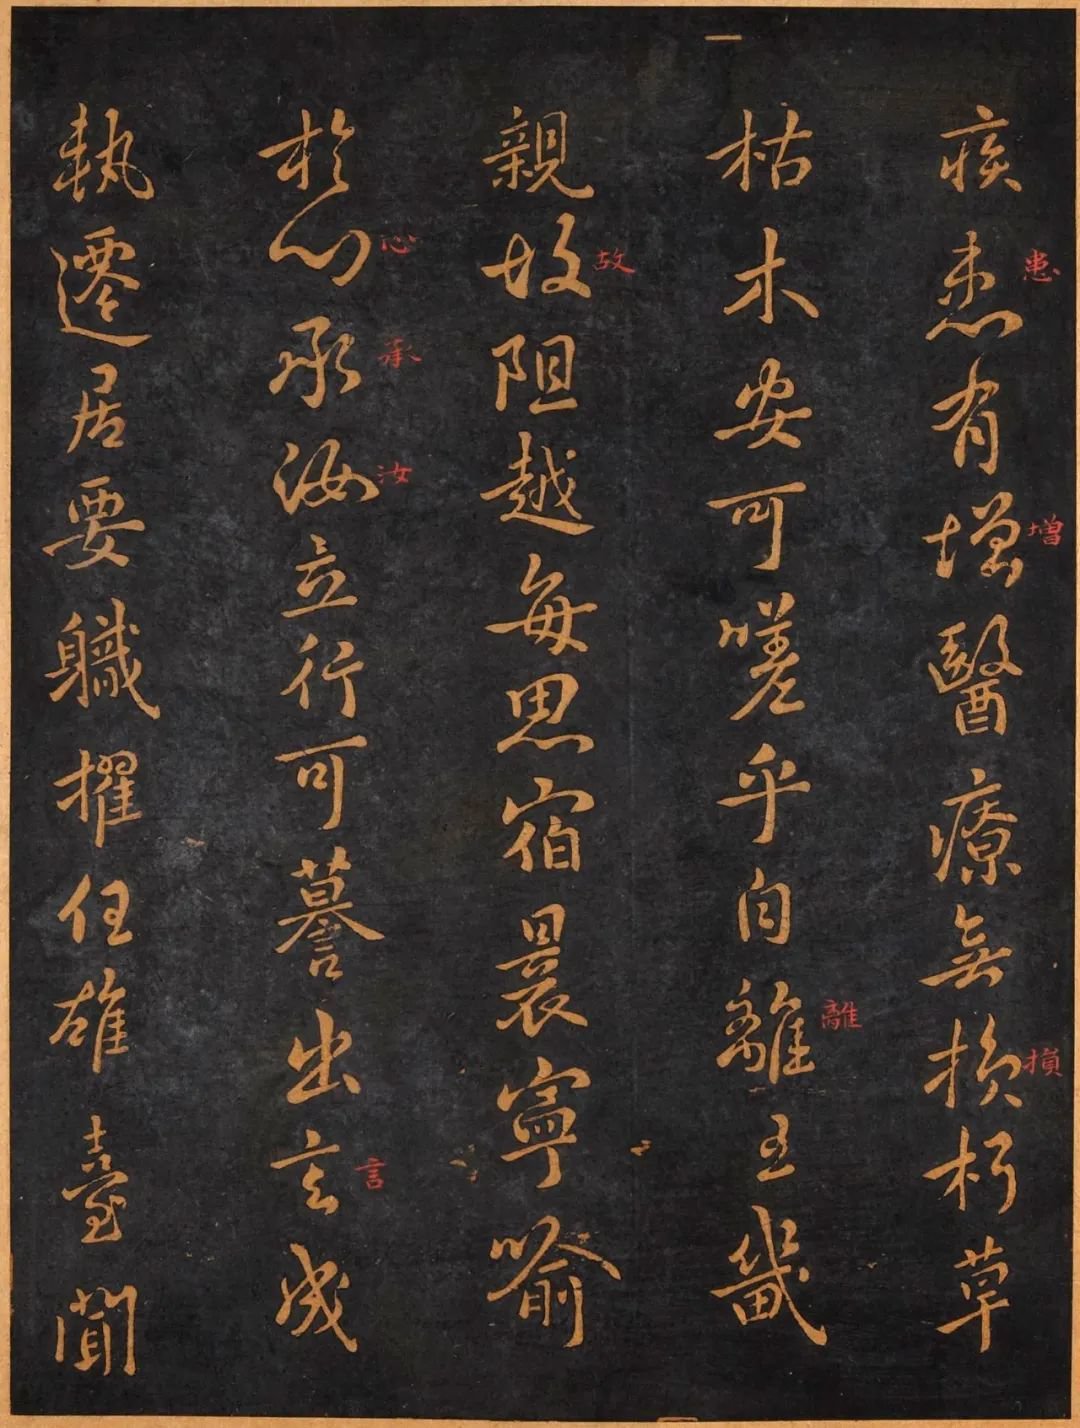 疾患有增醫療無損朽草
患
增
損
枯木安可嗟乎自離王畿
離
親故阻越每思宿晨寧喻
故
於心承汝立行可譽出言成
心
承
汝
言
執遷居要職擢任雄臺聞